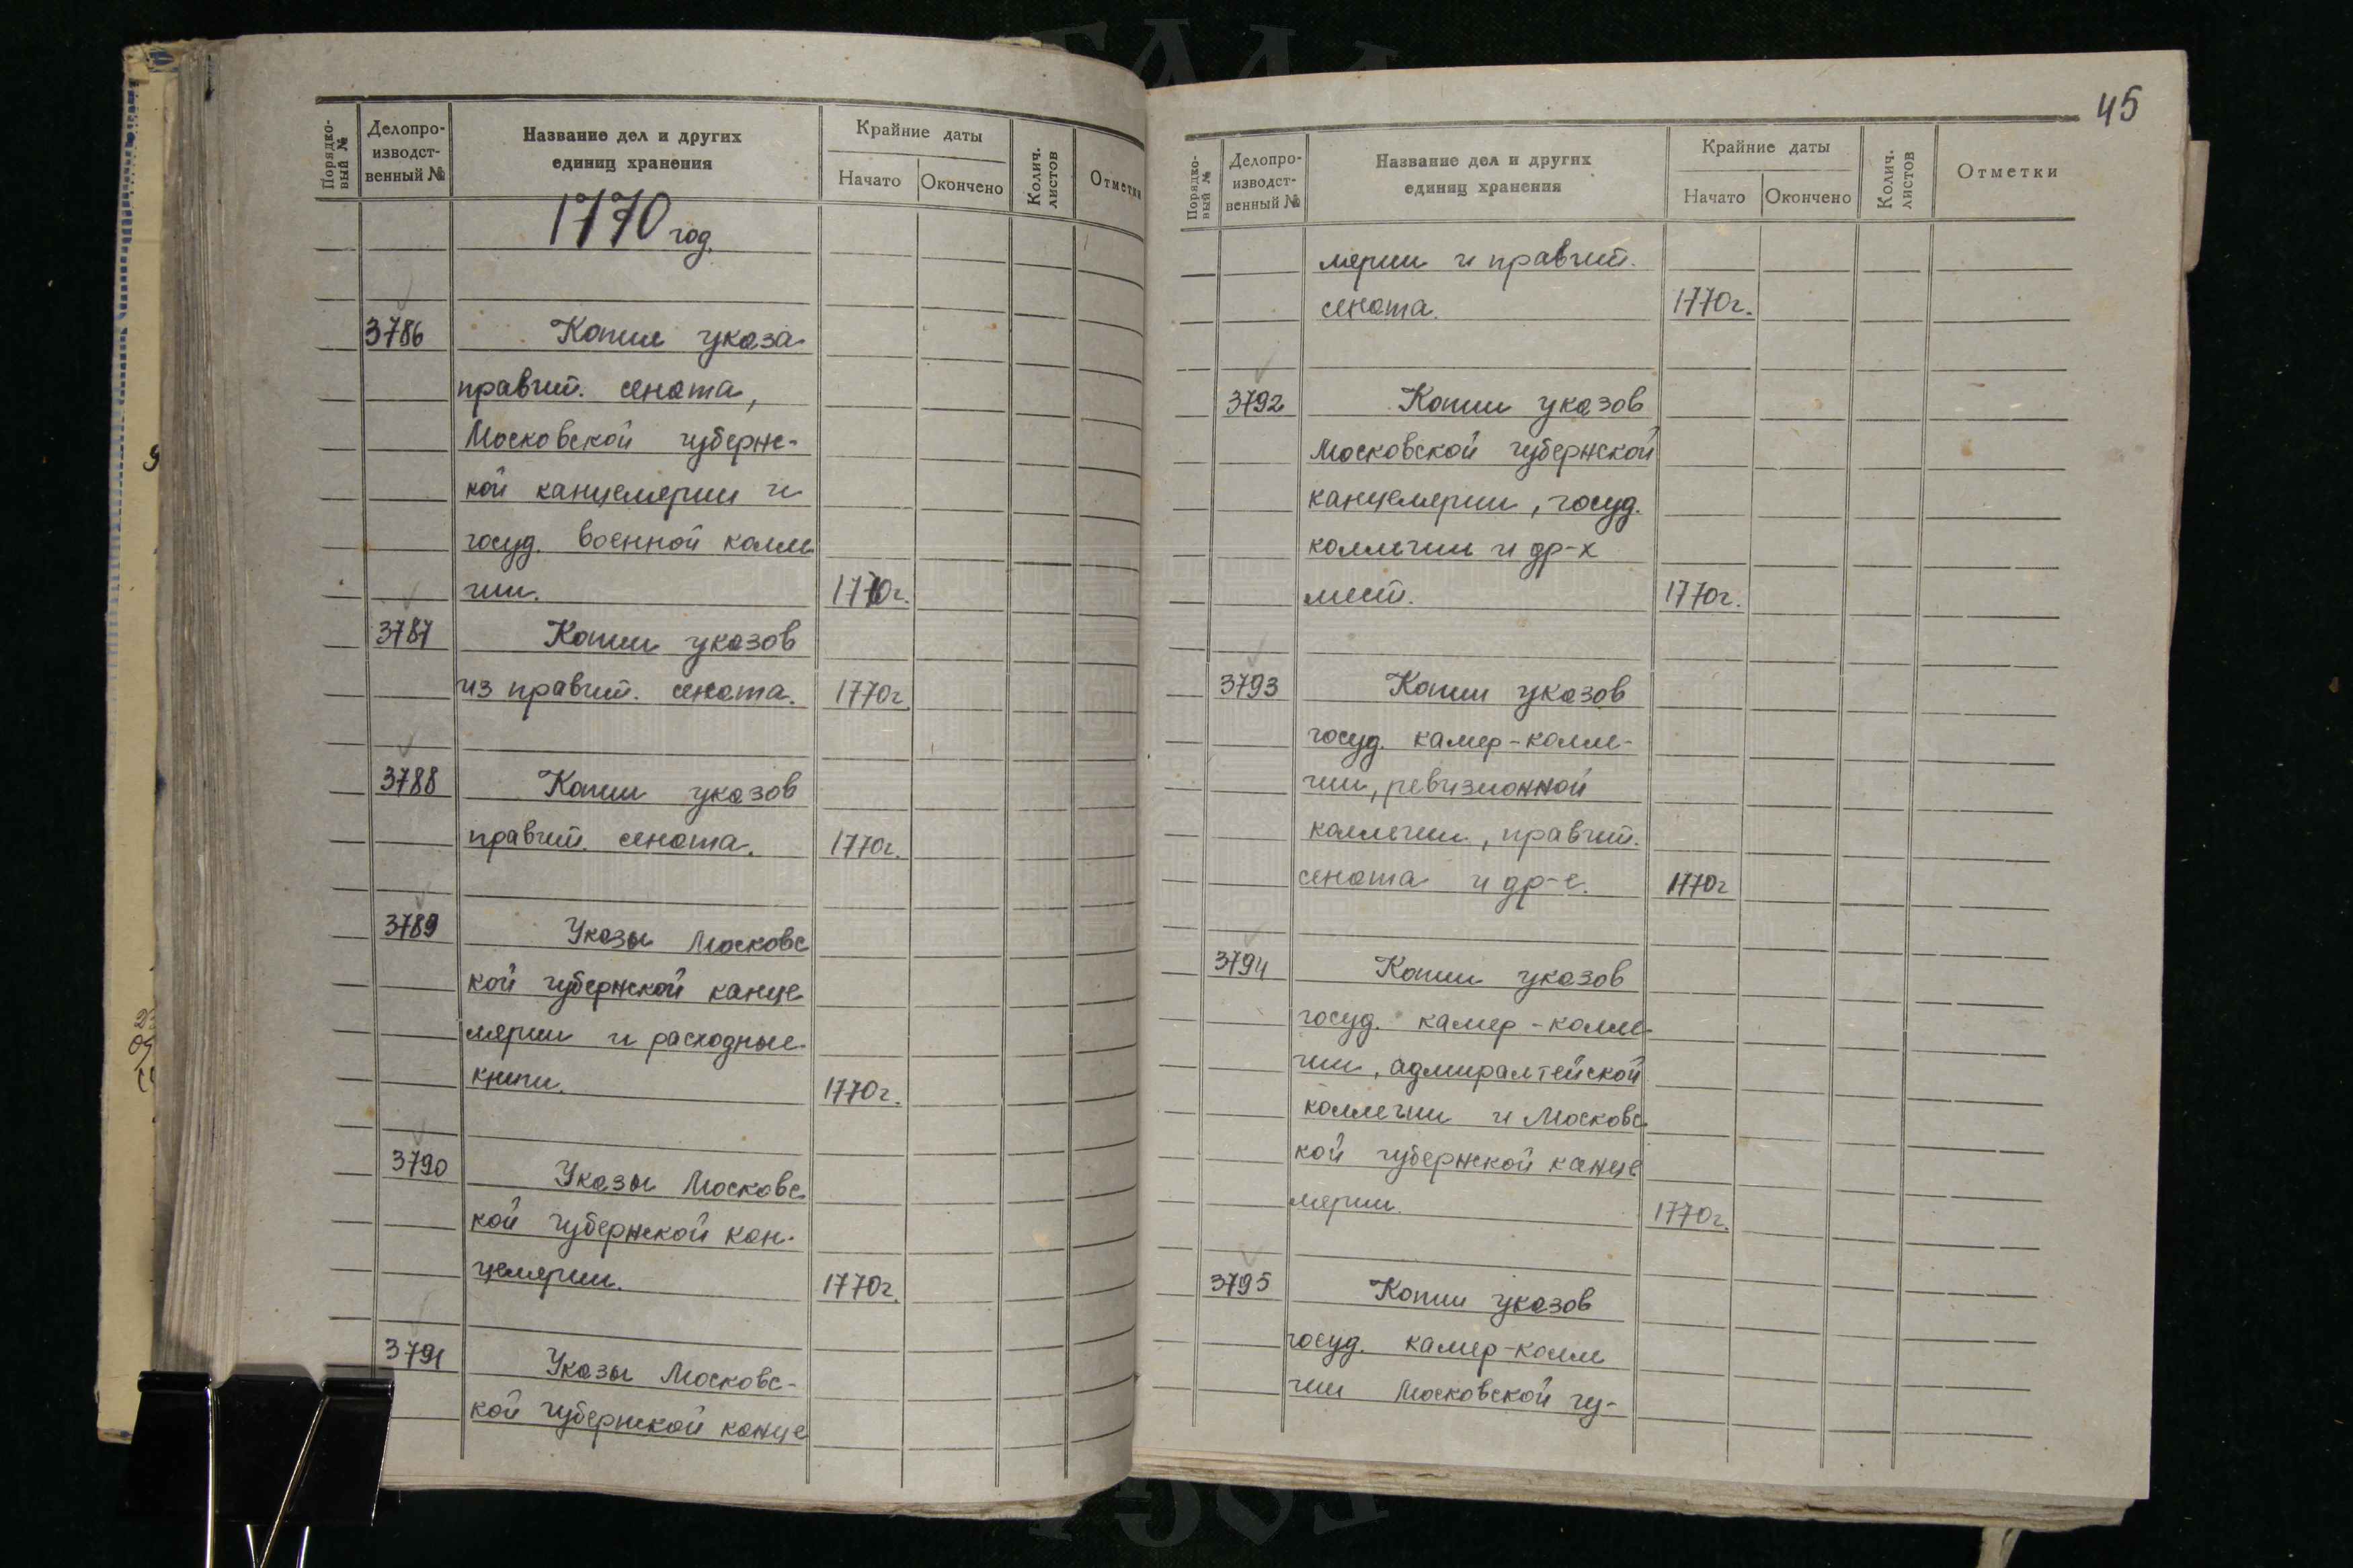 Порядко-
вый №
Делопро-
изводст-
венный №
Название дел и других
единиц хранения
Крайние даты
Начато
Окончено
Колич.
листов
Отметки
1770 год.
3786 Копии указа
правит. сената,
Московской губернс-
кой канцелярии и
госуд. военной колле
гии. 1770г.
3787 Копии указов
из правит. сената. 1770г.
3788 Копии указов
правит. сената. 1770г.
3789 Указы Московс
кой губернской канце
лярии и расходные
книги. 1770г.
3790 Указы Московс
кой губернской кан-
целярии. 1770г.
3791 Указы Московс-
кой губернской канце
45
Порядко-
вый №
Делопро-
изводст-
венный №
Название дел и других
единиц хранения
Крайние даты
Начато
Окончено
Колич.
листов
Отметки
лярии и правит.
сената. 1770г.
3792 Копии указов
Московской губернской
канцелярии, госуд.
коллегии и др-х
мест. 1770г.
3793 Копии указов
госуд. камер-колле-
гии, ревизионной
коллегии, правит.
сената и др-е. 1770г
3794 Копии указов
госуд. камер-колле
гии, адмиралтейской
коллегии и Московс
кой губернской канце
лярии. 1770г.
3795 Копии указов
госуд. камер-колле
гии Московской гу-